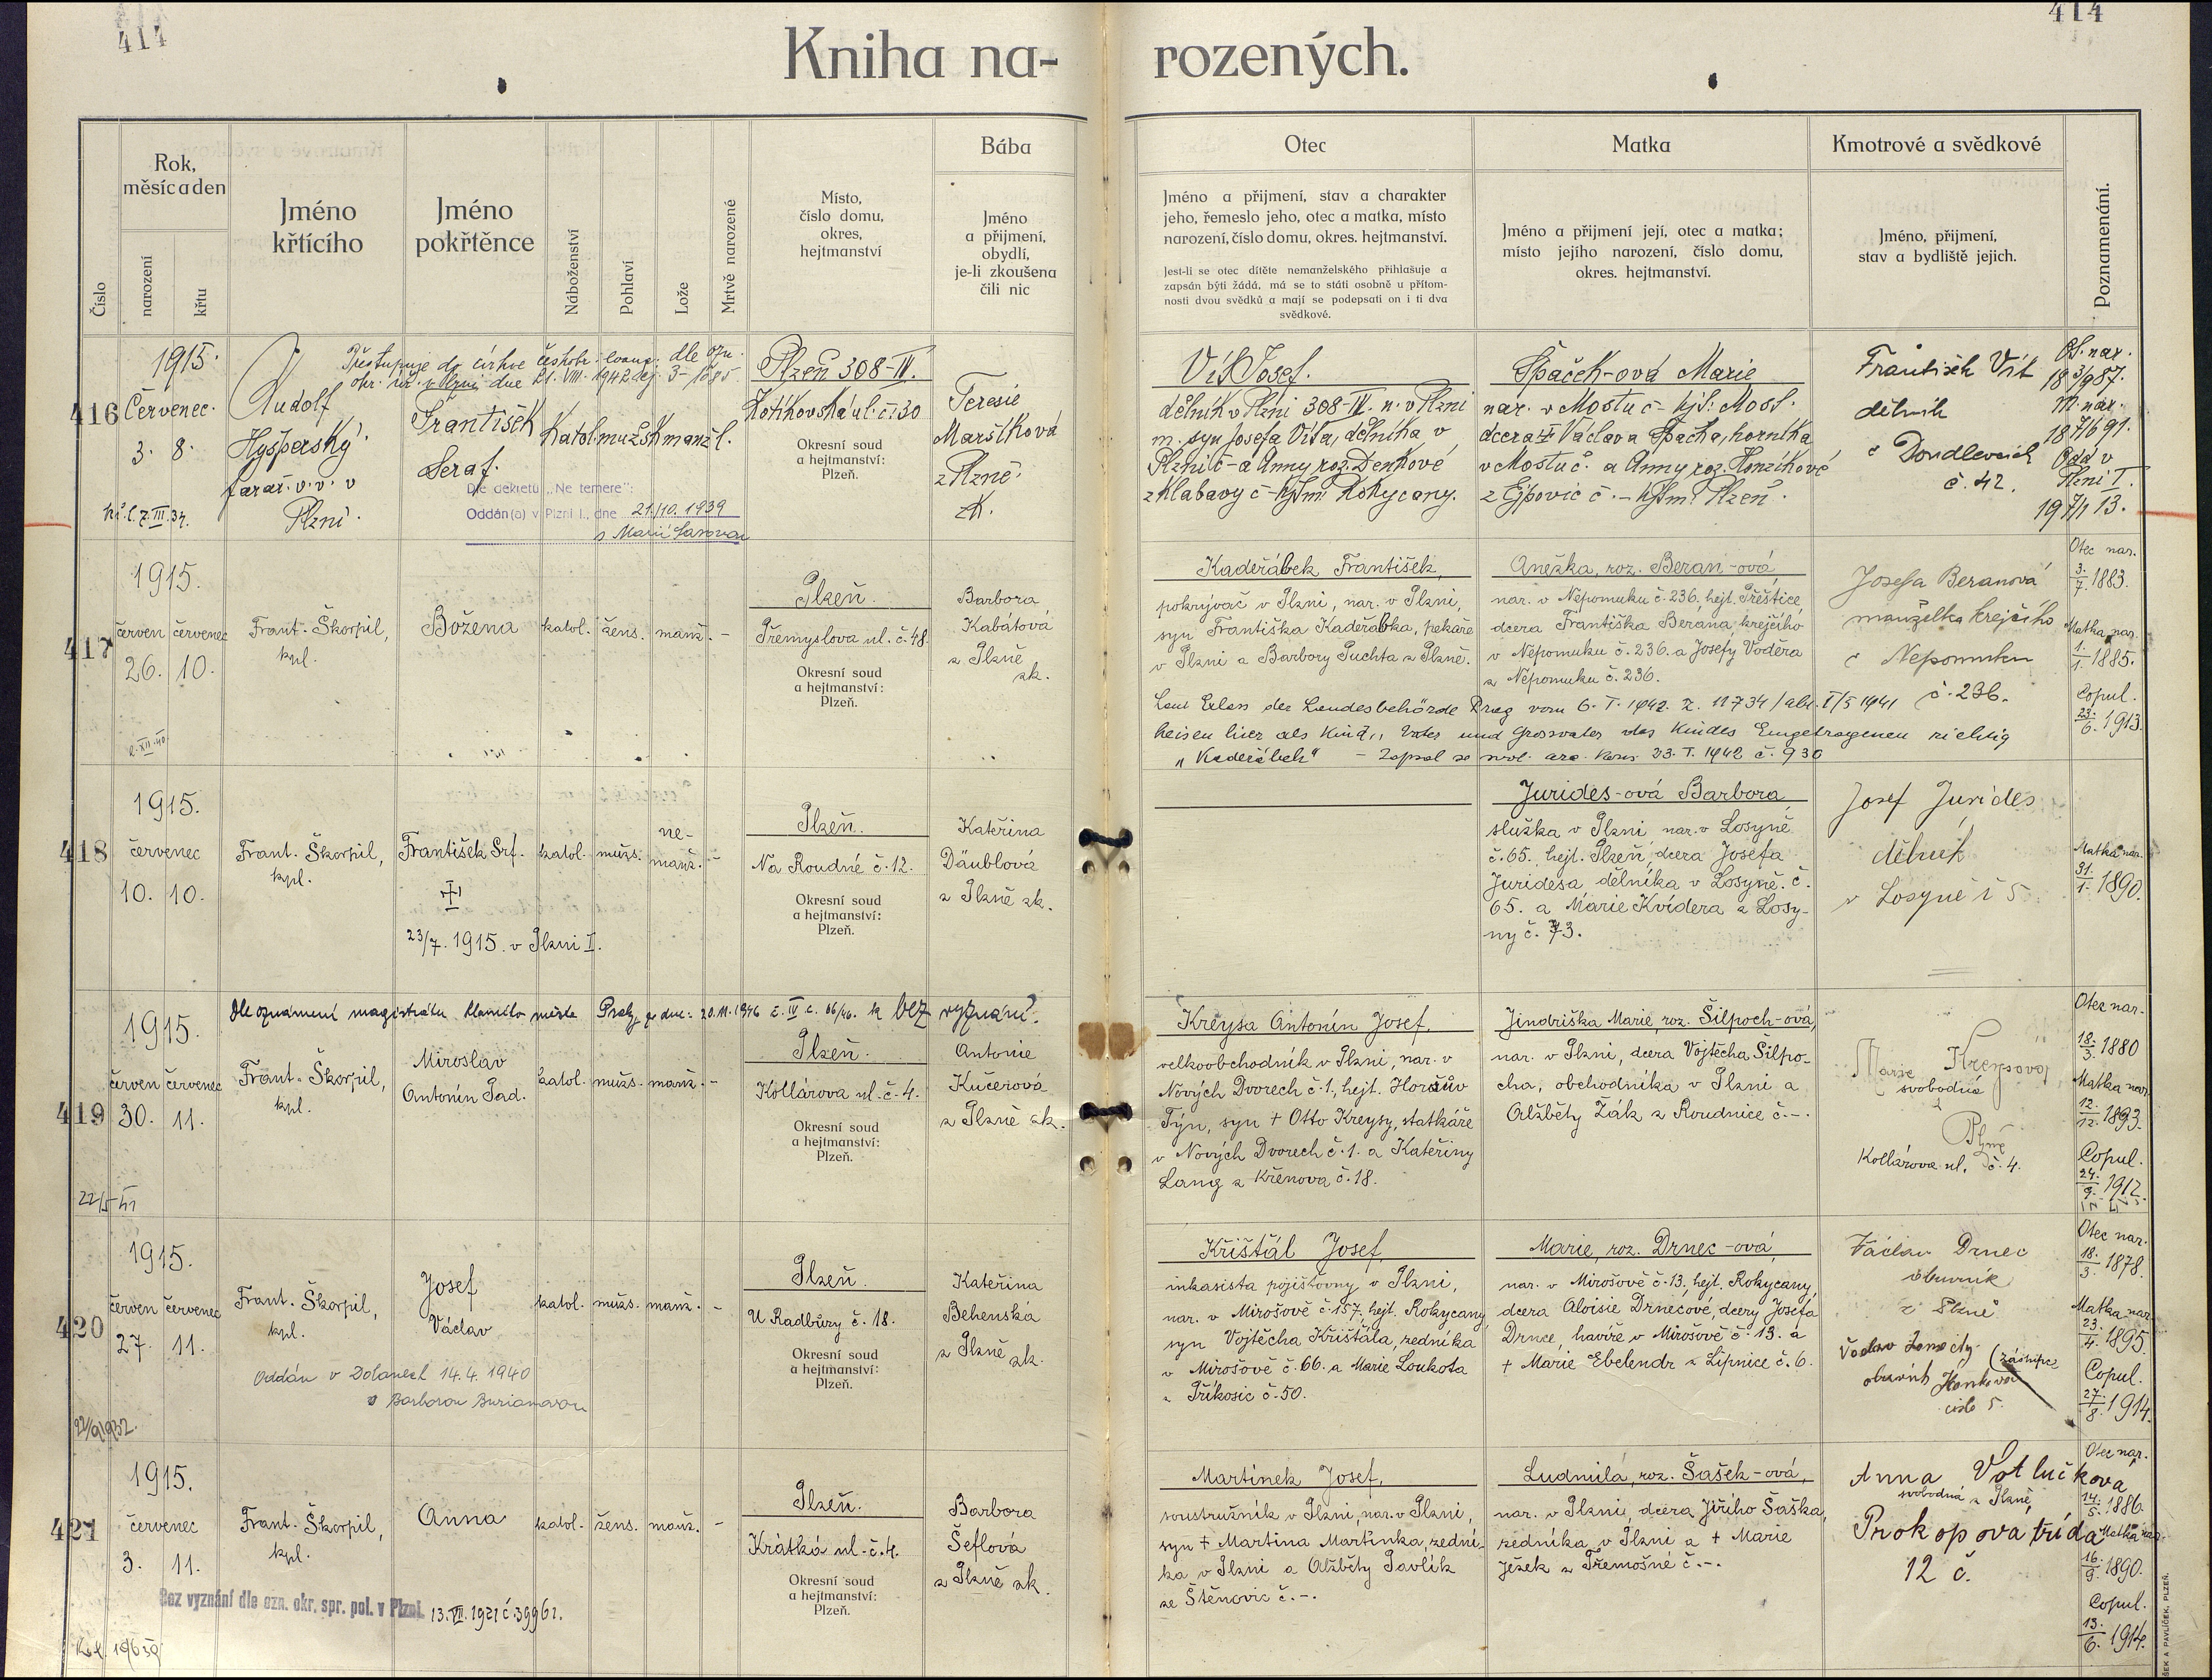 414
414
Kniha na-
rozených.
Číslo
Rok,
měsíc a den
narození
křtu
Jméno
křtícího
Jméno
pokřtěnce
Náboženství
Pohlaví
Lože
Mrtvě narozené
Místo,
číslo domu,
okres,
hejtmanství
Bába
Jméno
a přijmení,
obydlí,
je-li zkoušena
čili nic
Otec
Jméno a přijmení, stav a charakter
jeho, řemeslo jeho, otec a matka, místo
narození, číslo domu, okres. hejtmanství.
Jest-li se otec dítěte nemanželského přihlašuje a
zapsán býti žádá, má se to státi osobně u přítom-
nosti dvou svědků a mají se podepsati on i ti dva
svědkové.
Matka
Jméno a přijmení její, otec a matka;
místo jejího narození, číslo domu,
okres. hejtmanství.
Kmotrové a svědkové
Jméno, přijmení,
stav a bydliště jejich.
Poznamenání.
416
1915.
Červenec.
3. 8.
Přestupuje do církve českobr. evang. dle ozn.
okr. úř. v Plzni dne 21. VIII. 1942
Rudolf
Hyšperský.
farář v. v. v
Plzni.
František
Seraf.
Katol. mužsk manžl.
Dle dekretu „Ne temere":
Oddán(a) v Plzni I., dne 21./10. 1939
s Marií
Plzeň 308-IV.
Kotíkovská ul. č. 30
Okresní soud
a hejtmanství:
Plzeň.
Teresie
Maršíková
z Plzně.
zk.
Vít Josef.
dělník v Plzni 308-IV. n. v Plzni
m. syn Josefa Víta, dělníka v
Plzni č - a Anny roz. Denkové
z Klabavy č - hjtm: Rokycany.
Špaček-ová Marie
nar. v Mostu č - hjt: Most.
dcera Václava Špačka, horníka
v Mostu č. a Anny roz. Honzíkové
z Ejpovic č. - hjtm: Plzeň.
František Vít
dělník
v Doudlevcích
č. 42.
Ot. nar.
18 3/9 87.
M. nar.
18 7/6 91.
Odd v
Plzni I.
19 7/1 13.
417
1915.
červen červenec
26. 10.
Frant. Škorpil,
kpl.
Božena
katol. žens. manž. -
Plzeň.
Přemyslova ul. č. 48.
Okresní soud
a hejtmanství:
Plzeň.
Barbora
Kabátová
z Plzně
zk.
Kadeřábek František,
pokrývač v Plzni, nar. v Plzni,
syn Františka Kadeřábka, pekaře
v Plzni a Barbory Puchta z Plzně.
Anežka, roz. Beran-ová
nar. v Nepomuku č. 236, hejt. Přeštice,
dcera Františka Berana, krejčího
v Nepomuku č. 236. a Josefy Voděra
z Nepomuku č. 236.
Josefa Beranová
manželka krejčího
v Nepomuku
č. 236.
Otec nar.
3./7. 1883.
Matka nar.
1./1. 1885.
Copul.
23./6. 1913.
Laut Erlass der Landesbehörde Prag vom 6. I. 1942. Z. 11734/
heisen hier als Kind, Vater und Grossvater des Kindes Eingetragenen richtig
„Kadeřábek"
418
1915.
červenec
10. 10.
Frant. Škorpil,
kpl.
František Srf.
23/7. 1915. v Plzni I.
katol. mužs. ne-
manž. -
Plzeň.
Na Roudné č. 12.
Okresní soud
a hejtmanství:
Plzeň.
Kateřina
Däublová
z Plzně zk.
Jurides-ová Barbora,
služka v Plzni nar. v Losyně
č. 65., hejt. Plzeň, dcera Josefa
Juridesa, dělníka v Losyně. č.
65. a Marie Kvídera z Losy-
ny č. 73.
Josef Jurides
dělník
v Losyně č 5
Matka nar.
31./1. 1890.
419
Dle oznámení magistrátu hlavního města Prahy ze dne: 20.11.1946 č. IV c. 66/46. je bez vyznání.
1915.
červen červenec
30. 11.
Frant. Škorpil,
kpl.
Miroslav
Antonín Tad.
katol. mužs. manž. -
Plzeň.
Kollárova ul. č. 4.
Okresní soud
a hejtmanství:
Plzeň.
Antonie
Kučerová
z Plzně zk.
Kreysa Antonín Josef,
velkoobchodník v Plzni, nar. v
Nových Dvorech č. 1., hejt. Horšův
Týn, syn + Otto Kreysy, statkáře
v Nových Dvorech č. 1. a Kateřiny
Lang z Křenova č. 18.
Jindriška Marie, roz. Šilpoch-ová,
nar. v Plzni, dcera Vojtěcha Šilpo-
cha, obchodníka v Plzni a
Alžběty Žák z Roudnice č. -.
Marie Kreysová
svobodná
Plzně
Kollárova ul. č. 4.
Otec nar.
18./3. 1880
Matka nar.
12./12. 1893.
Copul.
24./9. 1912.
420
1915.
červen červenec
27. 11.
Frant. Škorpil,
kpl.
Josef
Václav
katol. mužs. manž. -
Oddán v Dolanech 14.4. 1940
s Barborou Burianovou
22/9 1932.
Plzeň.
U Radbůzy č. 18.
Okresní soud
a hejtmanství:
Plzeň.
Kateřina
Behenská
z Plzně zk.
Křišťál Josef,
inkasista pojišťovny v Plzni,
nar. v Mirošově č. 157, hejt. Rokycany,
syn Vojtěcha Křišťála, zedníka
v Mirošově č. 66. a Marie Loukota
z Příkosic č. 50.
Marie, roz. Drnec-ová,
nar. v Mirošově č. 13, hejt. Rokycany,
dcera Aloisie Drnecové, dcery Josefa
Drnce, havíře v Mirošově č. 13. a
+ Marie Ebelendr z Lipnice č. 6.
Václav Drnec
obuvník
z Plzně
Václav
(zástupce
obuvník
číslo 5.
Otec nar.
18./3. 1878.
Matka nar.
23./4. 1895.
Copul.
27./8. 1914.
421
1915.
červenec
3. 11.
Frant. Škorpil,
kpl.
Anna
katol. žens. manž. -
Bez vyznání dle ozn. okr. spr. pol. v Plzni. 13. VII. 1921 č. 39961.
Plzeň.
Krátká ul. č. 4.
Okresní soud
a hejtmanství:
Plzeň.
Barbora
Šeflová
z Plzně zk.
Martínek Josef,
soustružník v Plzni, nar. v Plzni,
syn + Martina Martínka, zední-
ka v Plzni a Alžběty Pavlík
ze Štěnovic č. -.
Ludmila, roz. Šašek-ová,
nar. v Plzni, dcera Jiřího Šaška,
zedníka v Plzni a + Marie
Ježek z Třemošné č. -.
Anna Votlučková
svobodná z Plzně,
Prokopova třída
12 č.
Otec nar.
14./5. 1886.
Matka nar.
16./9. 1890.
Copul.
13./6. 1914.
ŠEK A PAVLÍČEK, PLZEŇ.